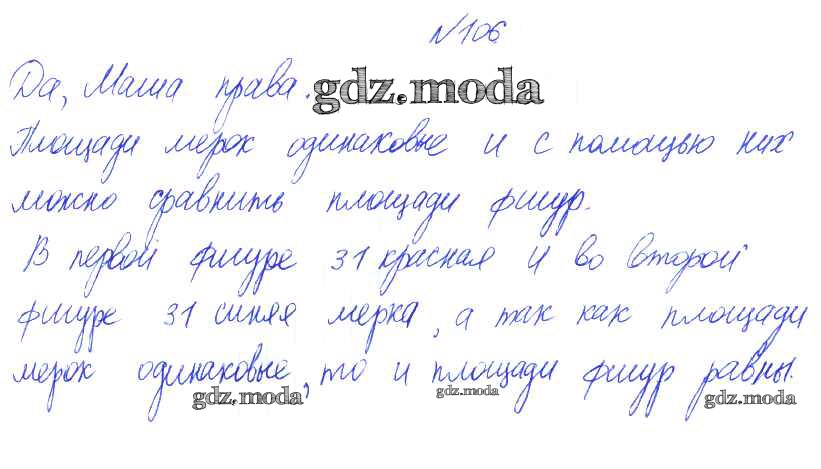 №106.
Да, Маша права. gdz.moda
Площади мерок одинаковые и с помощью них
можно сравнить площади фигур.
В первой фигуре 31 красная и во второй
фигуре 31 синяя мерка, а так как площади
мерок одинаковые, то и площади фигур равны.
gdz.moda gdz.moda gdz.moda